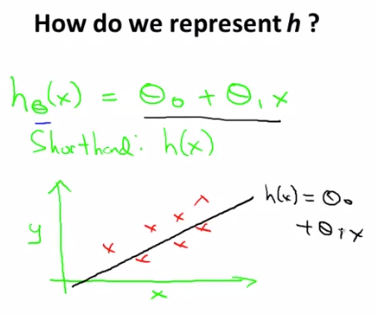 How do we represent h ?
hθ(x) = θ₀ + θ₁x
Shorthand: h(x)
h(x) = θ₀
+ θ₁x
y
x